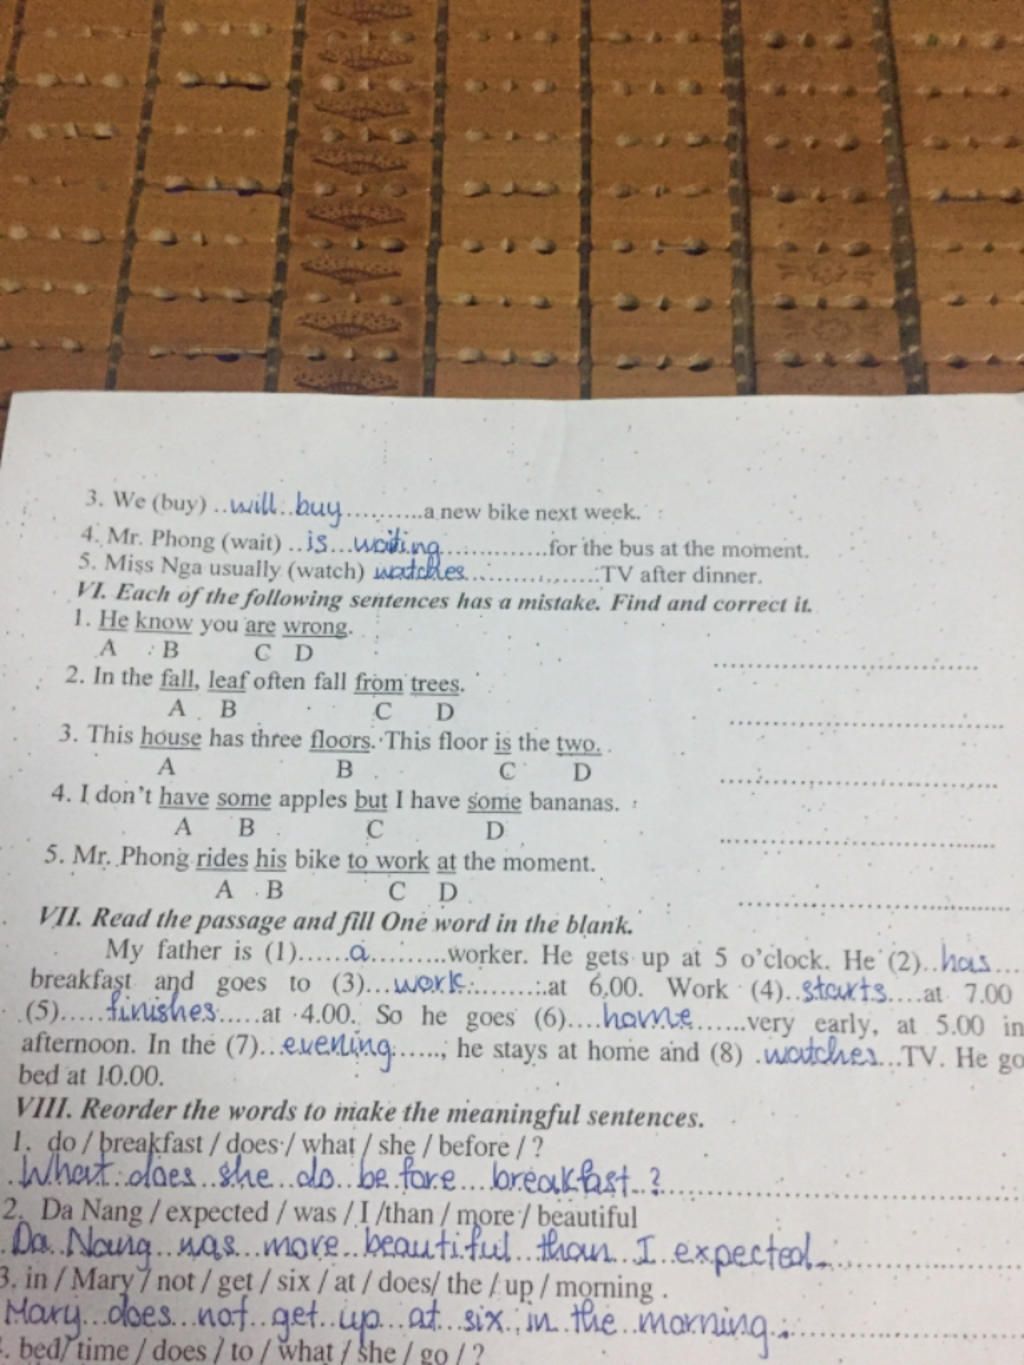 3. We (buy) ..will..buy..........a new bike next week.
4. Mr. Phong (wait) ..is...waiting..............for the bus at the moment.
5. Miss Nga usually (watch) watches..............TV after dinner.
VI. Each of the following sentences has a mistake. Find and correct it.
1. He know you are wrong.
A B C D ..............................
2. In the fall, leaf often fall from trees.
A B C D ..............................
3. This house has three floors. This floor is the two.
A B C D ..............................
4. I don't have some apples but I have some bananas.
A B C D ..............................
5. Mr. Phong rides his bike to work at the moment.
A B C D ..............................
VII. Read the passage and fill One word in the blank.
My father is (1)......a.........worker. He gets up at 5 o'clock. He (2)..has....
breakfast and goes to (3)...work.........at 6.00. Work (4)..starts....at 7.00
(5).....finishes.....at 4.00. So he goes (6)....home.......very early, at 5.00 in
afternoon. In the (7)...evening......, he stays at home and (8) .watches...TV. He go
bed at 10.00.
VIII. Reorder the words to make the meaningful sentences.
1. do / breakfast / does / what / she / before / ?
.What..does..she..do..before...breakfast..?..............................
2. Da Nang / expected / was / I /than / more / beautiful
.Da..Nang..was...more..beautiful..than..I..expected...................
3. in / Mary / not / get / six / at / does/ the / up / morning .
Mary...does...not..get..up...at..six..in..the..morning...................
. bed/ time / does / to / what / she / go / ?